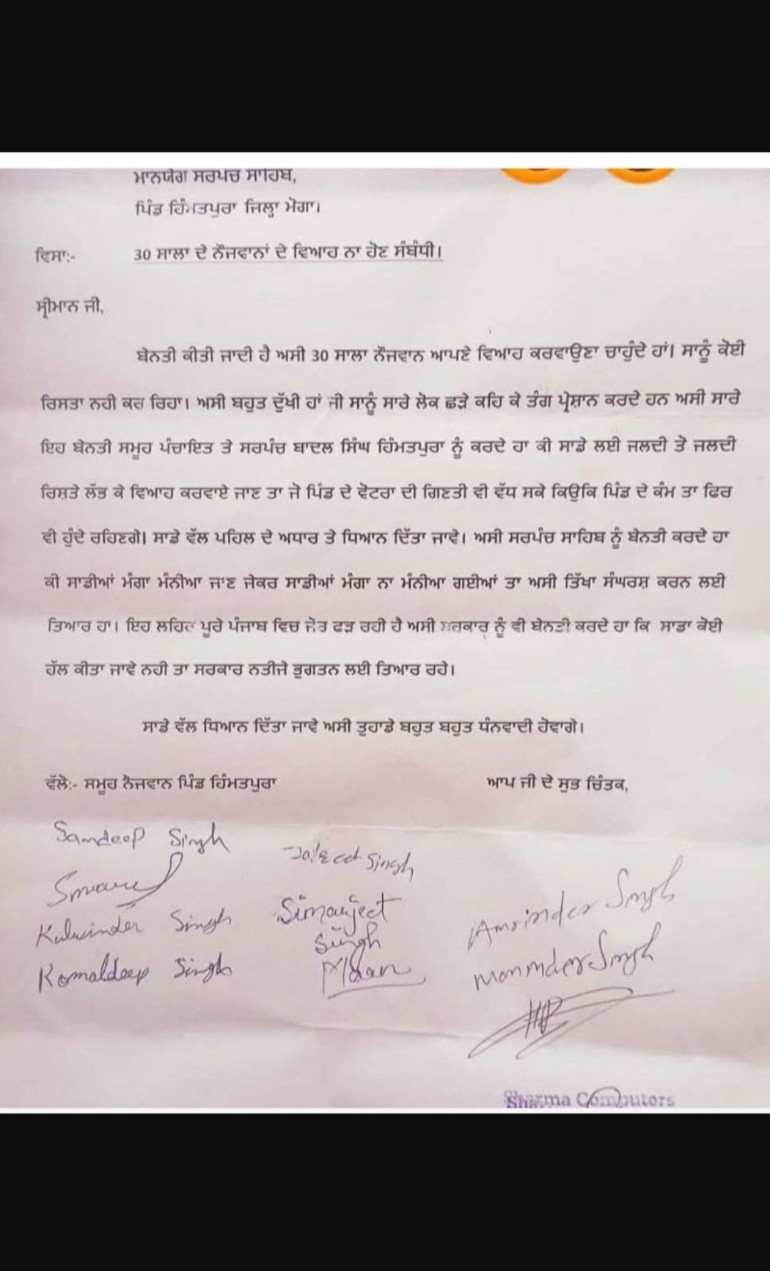 ਮਾਨਯੋਗ ਸਰਪਚ ਸਾਹਿਬ,
ਪਿੰਡ ਹਿੰਮਤਪੁਰਾ ਜਿਲ੍ਹਾ ਮੋਗਾ।
ਵਿਸਾ:- 30 ਸਾਲਾ ਦੇ ਨੌਜਵਾਨਾਂ ਦੇ ਵਿਆਹ ਨਾ ਹੋਣ ਸੰਬੰਧੀ।
ਸ੍ਰੀਮਾਨ ਜੀ,
ਬੇਨਤੀ ਕੀਤੀ ਜਾਦੀ ਹੈ ਅਸੀ 30 ਸਾਲਾ ਨੌਜਵਾਨ ਆਪਣੇ ਵਿਆਹ ਕਰਵਾਉਣਾ ਚਾਹੁੰਦੇ ਹਾਂ। ਸਾਨੂੰ ਕੋਈ
ਰਿਸਤਾ ਨਹੀ ਕਰ ਰਿਹਾ। ਅਸੀ ਬਹੁਤ ਦੁੱਖੀ ਹਾਂ ਜੀ ਸਾਨੂੰ ਸਾਰੇ ਲੋਕ ਛੜੇ ਕਹਿ ਕੇ ਤੰਗ ਪ੍ਰੇਸ਼ਾਨ ਕਰਦੇ ਹਨ ਅਸੀ ਸਾਰੇ
ਇਹ ਬੇਨਤੀ ਸਮੂਹ ਪੰਚਾਇਤ ਤੇ ਸਰਪੰਚ ਬਾਦਲ ਸਿੰਘ ਹਿੰਮਤਪੁਰਾ ਨੂੰ ਕਰਦੇ ਹਾ ਕੀ ਸਾਡੇ ਲਈ ਜਲਦੀ ਤੋ ਜਲਦੀ
ਰਿਸ਼ਤੇ ਲੱਭ ਕੇ ਵਿਆਹ ਕਰਵਾਏ ਜਾਣ ਤਾ ਜੋ ਪਿੰਡ ਦੇ ਵੋਟਰਾ ਦੀ ਗਿਣਤੀ ਵੀ ਵੱਧ ਸਕੇ ਕਿਉਕਿ ਪਿੰਡ ਦੇ ਕੰਮ ਤਾ ਫਿਰ
ਵੀ ਹੁੰਦੇ ਰਹਿਣਗੇ। ਸਾਡੇ ਵੱਲ ਪਹਿਲ ਦੇ ਅਧਾਰ ਤੇ ਧਿਆਨ ਦਿੱਤਾ ਜਾਵੇ। ਅਸੀ ਸਰਪੰਚ ਸਾਹਿਬ ਨੂੰ ਬੇਨਤੀ ਕਰਦੇ ਹਾ
ਕੀ ਸਾਡੀਆਂ ਮੰਗਾ ਮੰਨੀਆ ਜਾਣ ਜੇਕਰ ਸਾਡੀਆਂ ਮੰਗਾ ਨਾ ਮੰਨੀਆ ਗਈਆਂ ਤਾ ਅਸੀ ਤਿੱਖਾ ਸੰਘਰਸ਼ ਕਰਨ ਲਈ
ਤਿਆਰ ਹਾ। ਇਹ ਲਹਿਰ ਪੂਰੇ ਪੰਜਾਬ ਵਿਚ ਜੋਤ ਫੜ ਰਹੀ ਹੈ ਅਸੀ ਸਰਕਾਰ ਨੂੰ ਵੀ ਬੇਨਤੀ ਕਰਦੇ ਹਾ ਕਿ ਸਾਡਾ ਕੋਈ
ਹੱਲ ਕੀਤਾ ਜਾਵੇ ਨਹੀ ਤਾ ਸਰਕਾਰ ਨਤੀਜੇ ਭੁਗਤਨ ਲਈ ਤਿਆਰ ਰਹੇ।
ਸਾਡੇ ਵੱਲ ਧਿਆਨ ਦਿੱਤਾ ਜਾਵੇ ਅਸੀ ਤੁਹਾਡੇ ਬਹੁਤ ਬਹੁਤ ਧੰਨਵਾਦੀ ਹੋਵਾਗੇ।
ਵੱਲੋ:- ਸਮੂਹ ਨੋਜਵਾਨ ਪਿੰਡ ਹਿੰਮਤਪੁਰਾ
ਆਪ ਜੀ ਦੇ ਸੁਭ ਚਿੰਤਕ,
Sandeep Singh
Singh
Kulwinder Singh
Simarjeet
Singh
Komaldeep Singh
Amrinder Singh
Manmder Singh
Sharma Computors